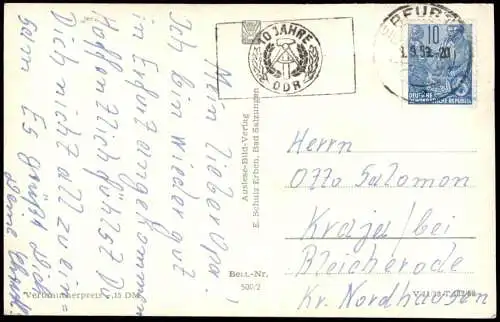 Mein lieber Opa!
Ich bin wieder gut
in Erfurt angekommen
Hoffentlich fühlst Du
Dich nicht allzu ein=
sam Es grüßt Dich
Deine
Verbraucherpreis 15 DM
Auslese-Bild-Verlag
E. Schulz Erben, Bad Salzungen
Best.-Nr.
500/2
10 JAHRE
DDR
ERFURT
10
DEUTSCHE
DEMOKRATISCHE REPUBLIK
Herrn
Otto Salomon
Kraja/bei
Bleicherode
Kr. Nordhausen